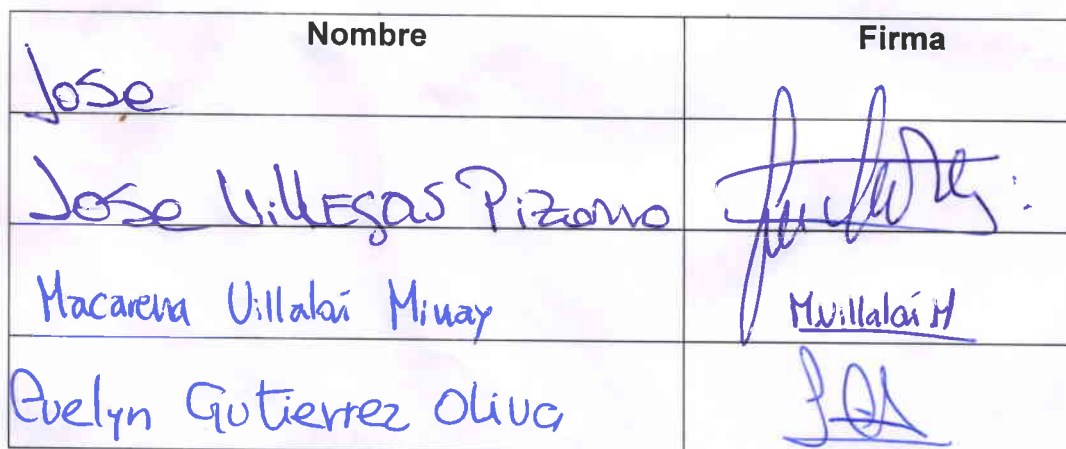 Nombre Firma
Jose
Jose Villegas Pizarro
Macarena Villaloi Minay M.Villaloi M
Evelyn Gutierrez Oliva